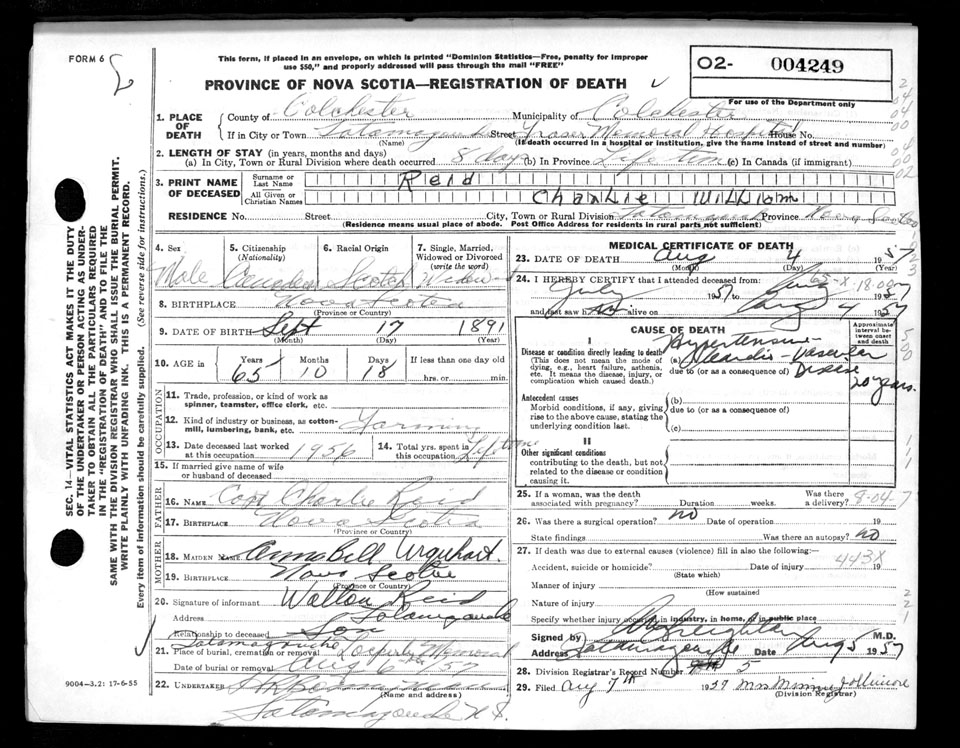 FORM 6
This form, if placed in an envelope, on which is printed "Dominion Statistics—Free, penalty for improper
use $50," and properly addressed will pass through the mail "FREE"
PROVINCE OF NOVA SCOTIA—REGISTRATION OF DEATH
O2- 004249
For use of the Department only
1. PLACE OF DEATH
County of Colchester Municipality of Colchester
If in City or Town Tatamagouche Street Fraser Memorial Hospital House No.
(Name) (If death occurred in a hospital or institution, give the name instead of street and number)
2. LENGTH OF STAY (in years, months and days)
(a) In City, Town or Rural Division where death occurred 8 days (b) In Province Life time (c) In Canada (if immigrant)
3. PRINT NAME OF DECEASED
Surname or Last Name Reid
All Given or Christian Names Charlie William
RESIDENCE No. Street City, Town or Rural Division Tatamagouche Province Nova Scotia
(Residence means usual place of abode. Post Office Address for residents in rural parts not sufficient)
4. Sex Male
5. Citizenship (Nationality) Canadian
6. Racial Origin Scotch
7. Single, Married, Widowed or Divorced (write the word)
8. BIRTHPLACE Nova Scotia
(Province or Country)
9. DATE OF BIRTH Sept 17 1891
(Month) (Day) (Year)
10. AGE in Years 65 Months 10 Days 18 If less than one day old
hrs. or min.
OCCUPATION
11. Trade, profession, or kind of work as spinner, teamster, office clerk, etc.
12. Kind of industry or business, as cotton-mill, lumbering, bank, etc. Farming
13. Date deceased last worked at this occupation 1956
14. Total yrs. spent in this occupation Life time
15. If married give name of wife or husband of deceased
FATHER
16. NAME Charlie Reid
17. BIRTHPLACE Nova Scotia
(Province or Country)
MOTHER
18. MAIDEN NAME Ann Bell Urquhart
19. BIRTHPLACE Nova Scotia
(Province or Country)
20. Signature of informant Walton Reid
Address Tatamagouche
Relationship to deceased Son
21. Place of burial, cremation or removal Tatamagouche Memorial
Date of burial or removal Aug 6th 57
22. UNDERTAKER
(Name and address)
Tatamagouche N.S.
9004-3.2: 17-6-55
SEC. 14—VITAL STATISTICS ACT MAKES IT THE DUTY
OF THE UNDERTAKER OR PERSON ACTING AS UNDER-
TAKER TO OBTAIN ALL THE PARTICULARS REQUIRED
IN THE "REGISTRATION OF DEATH" AND TO FILE THE
SAME WITH THE DIVISION REGISTRAR WHO SHALL ISSUE THE BURIAL PERMIT.
WRITE PLAINLY WITH UNFADING INK. THIS IS A PERMANENT RECORD.
Every item of information should be carefully supplied. (See reverse side for instructions.)
MEDICAL CERTIFICATE OF DEATH
23. DATE OF DEATH Aug 4 1957
(Month) (Day) (Year)
24. I HEREBY CERTIFY that I attended deceased from
July 1957 to Aug 1957
and last saw alive on Aug 4 1957
CAUSE OF DEATH
Approximate interval between onset and death
I
Disease or condition directly leading to death (a) Hypertensive Cardio-Vascular Disease 20 years.
(This does not mean the mode of dying, e.g., heart failure, asthenia, etc. It means the disease, injury, or complication which caused death.)
due to (or as a consequence of)
Antecedent causes
Morbid conditions, if any, giving rise to the above cause, stating the underlying condition last.
(b)
due to (or as a consequence of)
(c)
II
Other significant conditions
contributing to the death, but not related to the disease or condition causing it.
25. If a woman, was the death associated with pregnancy? Duration weeks. Was there a delivery?
8-04-7
26. Was there a surgical operation? no Date of operation 19
State findings Was there an autopsy? no
27. If death was due to external causes (violence) fill in also the following:—
Accident, suicide or homicide? Date of injury 19
443X
(State which)
Manner of injury
(How sustained
Nature of injury
Specify whether injury occurred in industry, in home, or in public place
Signed by M.D.
Address Tatamagouche Date Aug 5 1957
28. Division Registrar's Record Number 5
29. Filed Aug 7th 1957 Mrs
(Division Registrar)